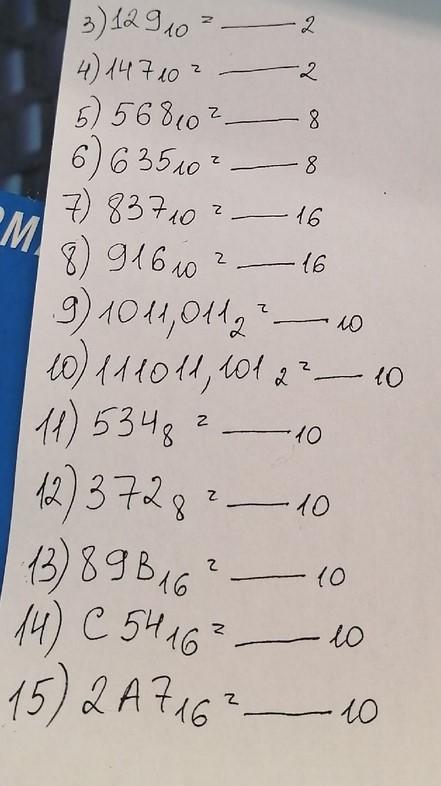 3) 129₁₀ = ―― ₂
4) 147₁₀ = ―― ₂
5) 568₁₀ = ―― ₈
6) 635₁₀ = ―― ₈
7) 837₁₀ = ―― ₁₆
8) 916₁₀ = ―― ₁₆
9) 1011,011₂ = ―― ₁₀
10) 111011,101₂ = ―― ₁₀
11) 534₈ = ―― ₁₀
12) 372₈ = ―― ₁₀
13) 89B₁₆ = ―― ₁₀
14) C54₁₆ = ―― ₁₀
15) 2A7₁₆ = ―― ₁₀